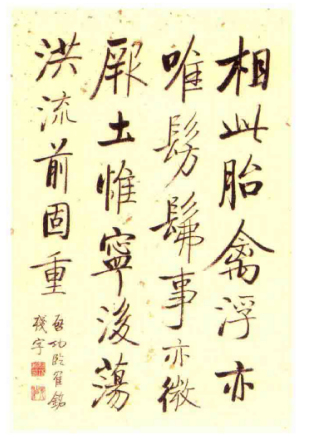 相此胎禽浮亦
唯髣髴事亦微
厥土惟寧後蕩
洪流前固重
啓功臨雀銘
殘字